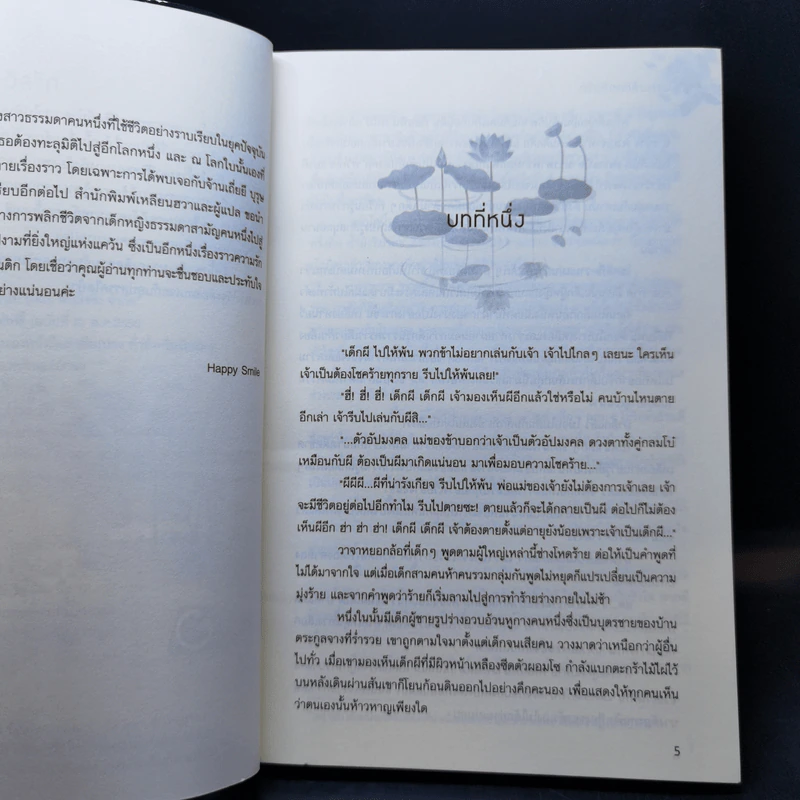 งสาวธรรมดาคนหนึ่งที่ใช้ชีวิตอย่างราบเรียบในยุคปัจจุบัน
ธอต้องทะลุมิติไปสู่อีกโลกหนึ่ง และ ณ โลกใบนั้นเองที่
ายเรื่องราว โดยเฉพาะการได้พบเจอกับจ้านเถี่ยยี บุรุษ
รียบอีกต่อไป สำนักพิมพ์เหลียนฮวาและผู้แปล ขอนำ
างการพลิกชีวิตจากเด็กหญิงธรรมดาสามัญคนหนึ่งไปสู่
งามที่ยิ่งใหญ่แห่งแคว้น ซึ่งเป็นอีกหนึ่งเรื่องราวความรัก
นติก โดยเชื่อว่าคุณผู้อ่านทุกท่านจะชื่นชอบและประทับใจ
ย่างแน่นอนค่ะ
Happy Smile
บทที่หนึ่ง
"เด็กผี ไปให้พ้น พวกข้าไม่อยากเล่นกับเจ้า เจ้าไปไกลๆ เลยนะ ใครเห็น
เจ้าเป็นต้องโชคร้ายทุกราย รีบไปให้พ้นเลย!"
"ฮี่! ฮี่! ฮี่! เด็กผี เด็กผี เจ้ามองเห็นผีอีกแล้วใช่หรือไม่ คนบ้านไหนตาย
อีกเล่า เจ้ารีบไปเล่นกับผีสิ..."
"...ตัวอัปมงคล แม่ของข้าบอกว่าเจ้าเป็นตัวอัปมงคล ดวงตาทั้งคู่กลมโบ๋
เหมือนกับผี ต้องเป็นผีมาเกิดแน่นอน มาเพื่อมอบความโชคร้าย..."
"ผีผีผี...ผีที่น่ารังเกียจ รีบไปให้พ้น พ่อแม่ของเจ้ายังไม่ต้องการเจ้าเลย เจ้า
จะมีชีวิตอยู่ต่อไปอีกทำไม รีบไปตายซะ! ตายแล้วก็จะได้กลายเป็นผี ต่อไปก็ไม่ต้อง
เห็นผีอีก ฮ่า ฮ่า ฮ่า! เด็กผี เด็กผี เจ้าต้องตายตั้งแต่อายุยังน้อยเพราะเจ้าเป็นเด็กผี..."
วาจาหยอกล้อที่เด็กๆ พูดตามผู้ใหญ่เหล่านี้ช่างโหดร้าย ต่อให้เป็นคำพูดที่
ไม่ได้มาจากใจ แต่เมื่อเด็กสามคนห้าคนรวมกลุ่มกันพูดไม่หยุดก็แปรเปลี่ยนเป็นความ
มุ่งร้าย และจากคำพูดว่าร้ายก็เริ่มลามไปสู่การทำร้ายร่างกายในไม่ช้า
หนึ่งในนั้นมีเด็กผู้ชายรูปร่างอวบอ้วนหูกางคนหนึ่งซึ่งเป็นบุตรชายของบ้าน
ตระกูลจางที่ร่ำรวย เขาถูกตามใจมาตั้งแต่เด็กจนเสียคน วางมาดว่าเหนือกว่าผู้อื่น
ไปทั่ว เมื่อเขามองเห็นเด็กผีที่มีผิวหน้าเหลืองซีดตัวผอมโซ กำลังแบกตะกร้าไม้ไผ่ไว้
บนหลังเดินผ่านสันเขาก็โยนก้อนดินออกไปอย่างคึกคะนอง เพื่อแสดงให้ทุกคนเห็น
ว่าตนเองนั้นห้าวหาญเพียงใด
5